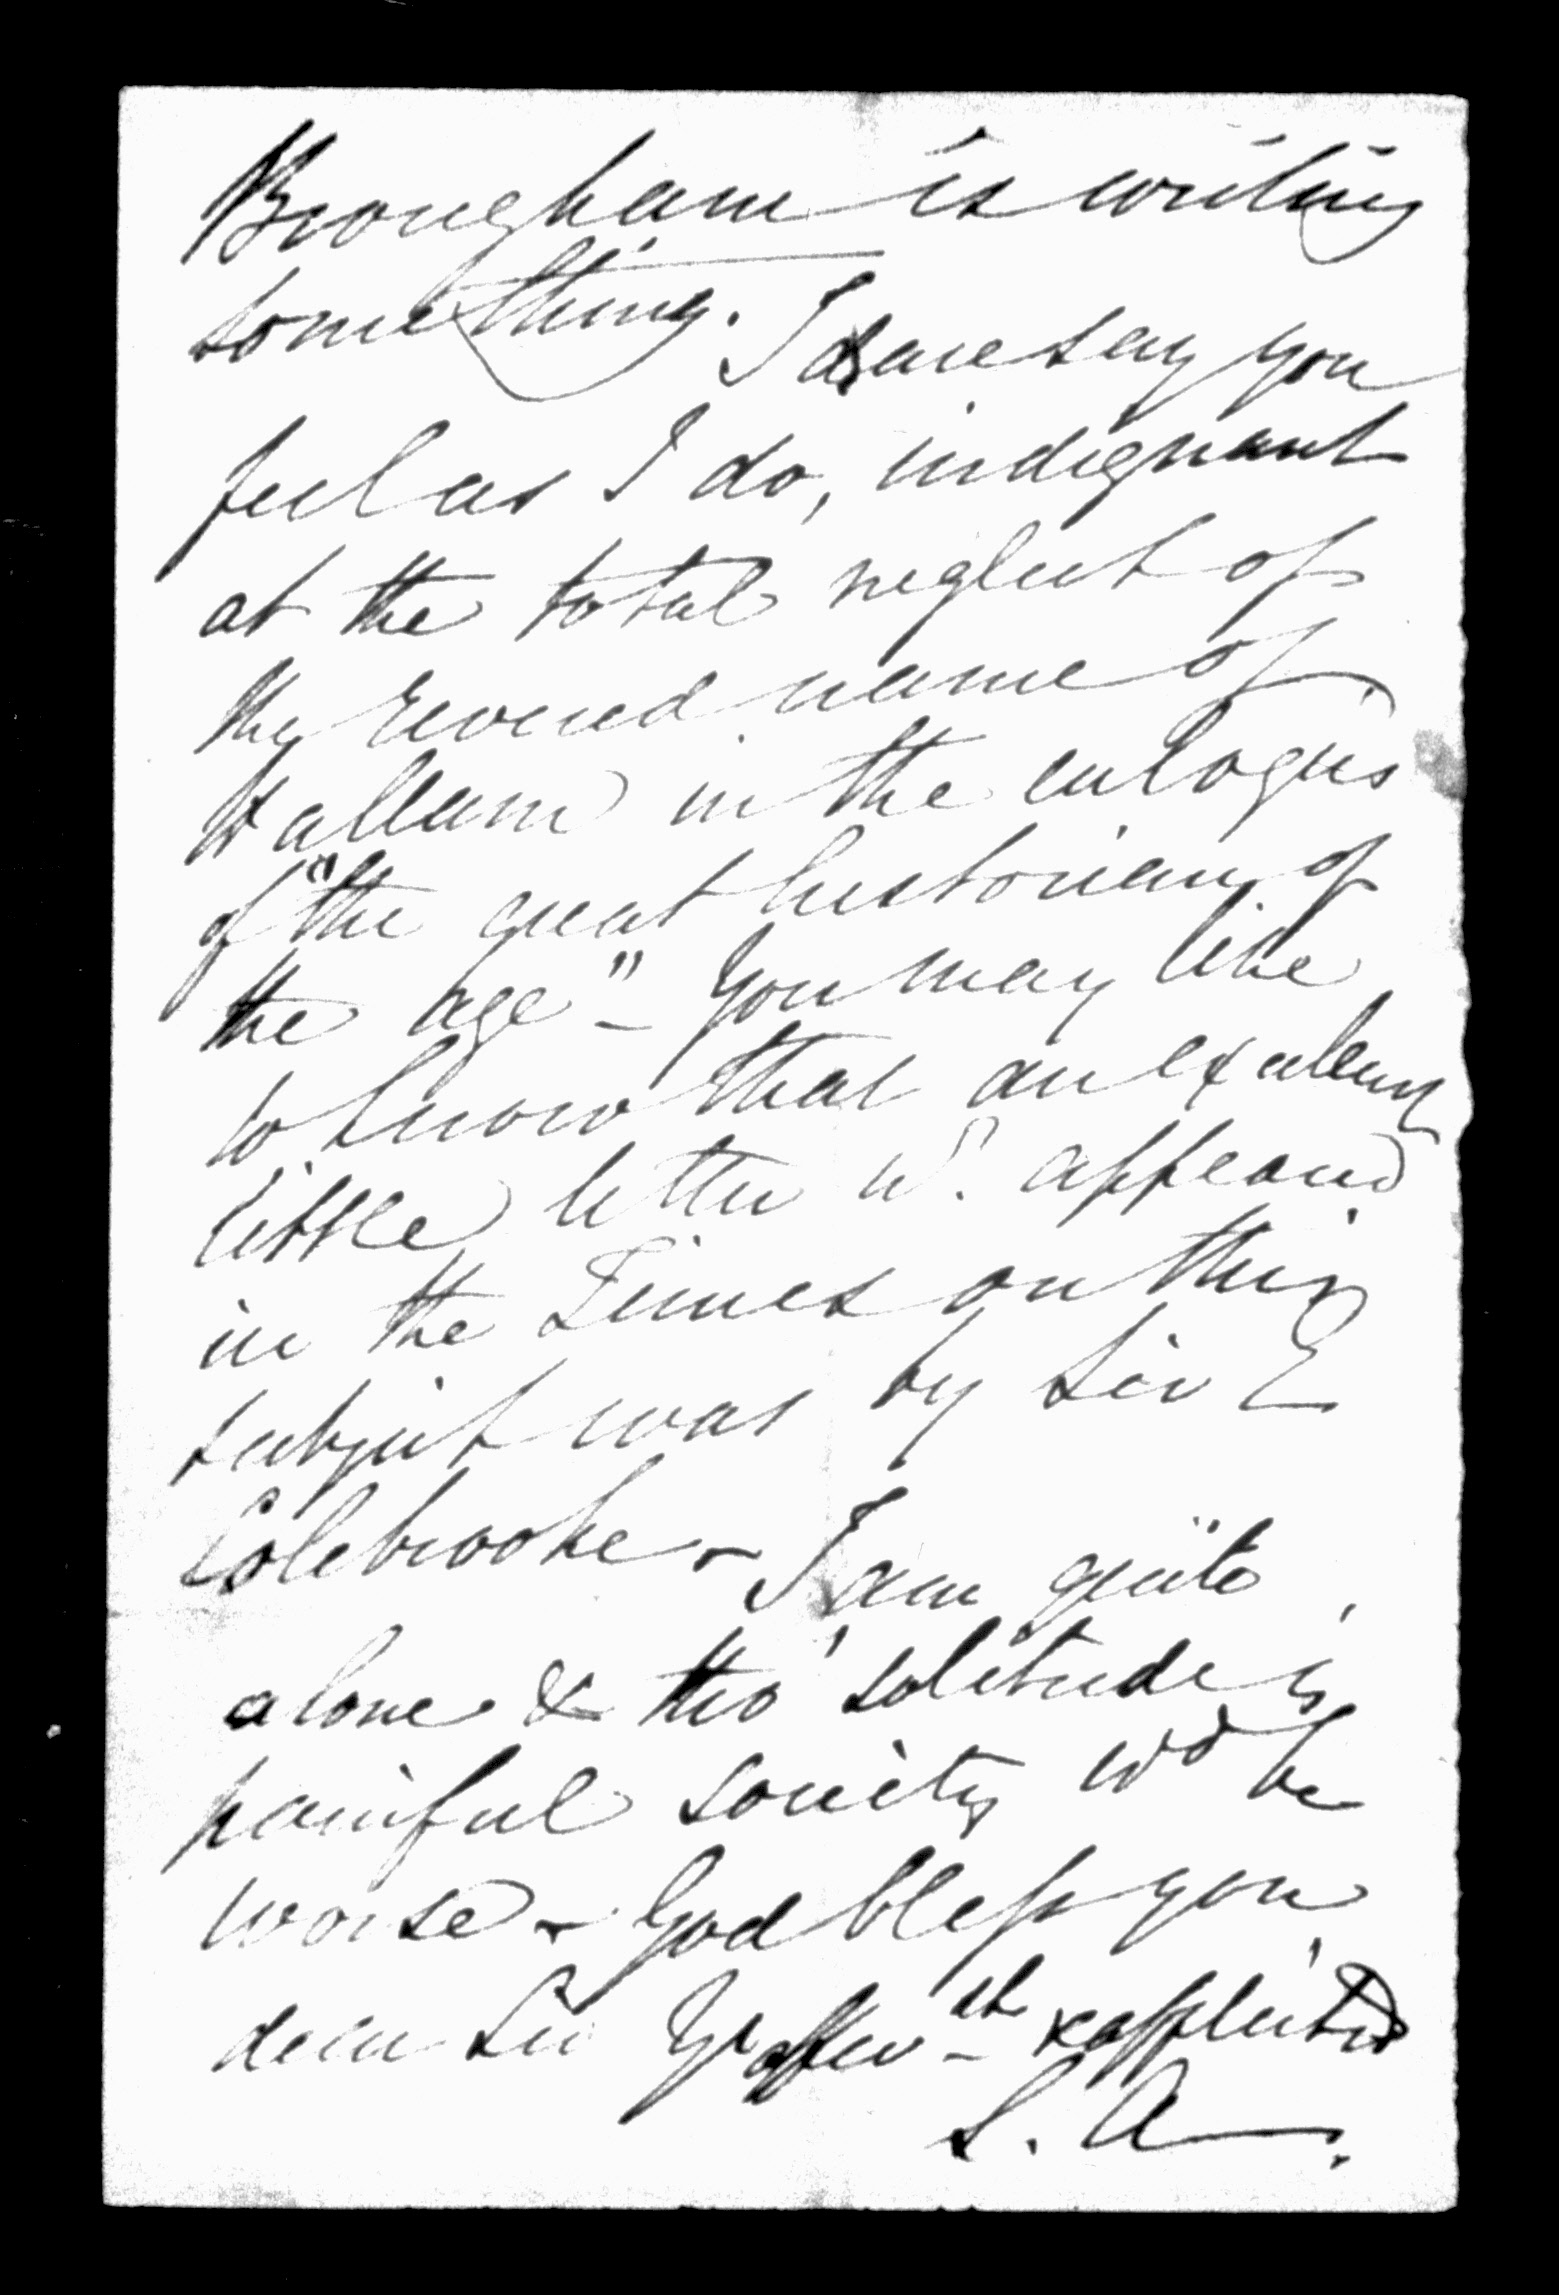 Brougham is writing
something. I dare say you
feel as I do, indignant
at the total neglect of
the revered name of
Hallam in the eulogies
of "the great historian of
the age" – You may like
to know that an excellent
little letter wh. appeared
in the Times on this
subject was by Sir E
Colebrooke – I am quite
alone & tho' solitude is
painful society wd be
worse – God bless you
dear Sir Yr affecate & afflicted
S. A.